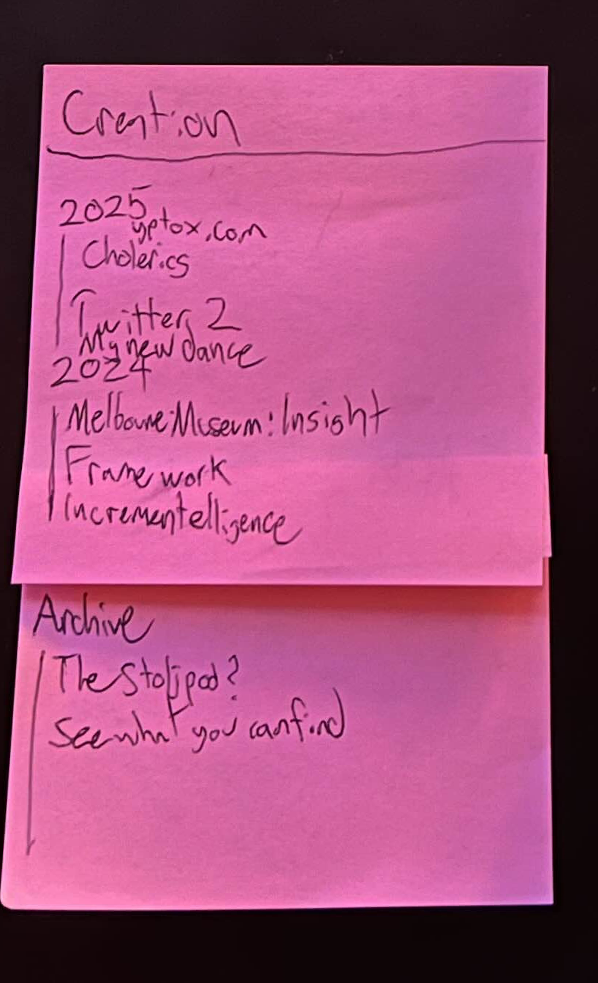 Creation
2025
yptox.com
Cholerics
Twitter 2
My new dance
2024
Melbourne Museum: Insight
Framework
Incrementelligence
Archive
The Stoljpod?
See what you can find